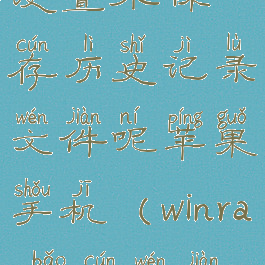 cún lì shǐ jì lù
存历史记录
wén jiàn ní píng guǒ
文件呢苹果
shǒu jī
手机（winra
bǎo cún wén jiàn